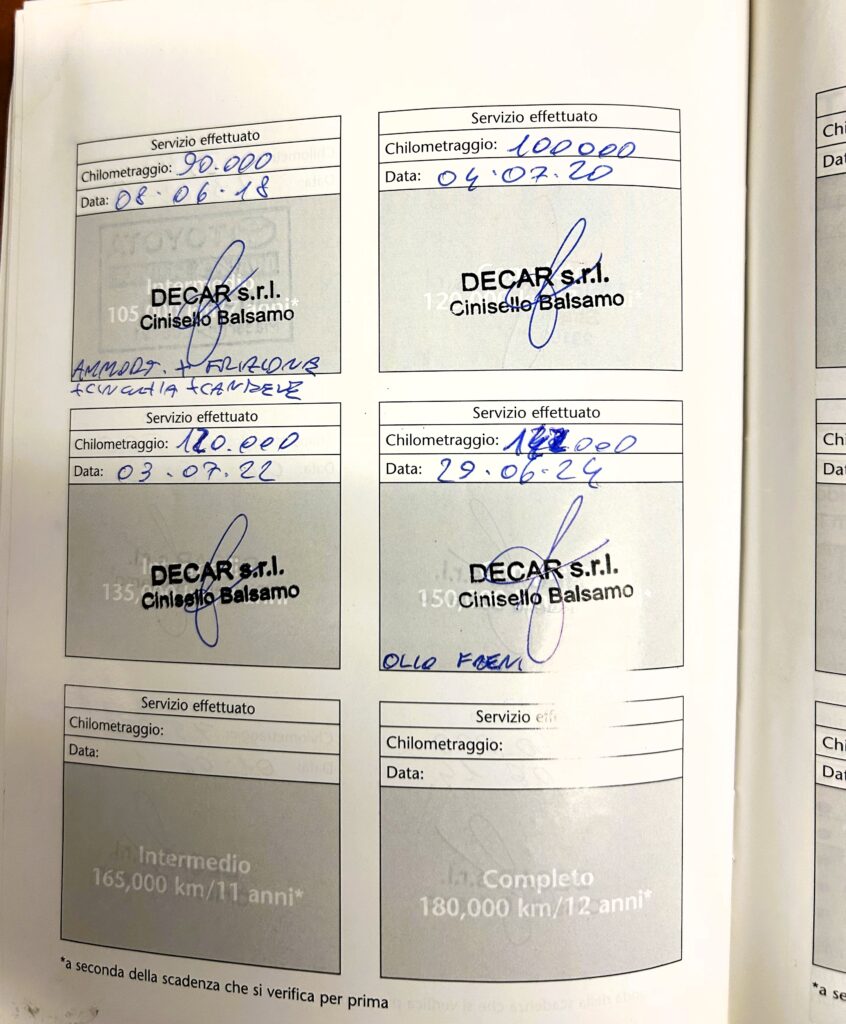 Servizio effettuato
Chilometraggio: 90.000
Data: 08.06.18
TOYOTA
Intermedio
105, anni*
DECAR s.r.l.
Cinisello Balsamo
AMMORT. + FRIZIONE
+ CINGHIA + CANDELE
Servizio effettuato
Chilometraggio: 100000
Data: 04.07.20
DECAR s.r.l.
Cinisello Balsamo
Servizio effettuato
Chilometraggio: 120.000
Data: 03.07.22
135, anni*
DECAR s.r.l.
Cinisello Balsamo
Servizio effettuato
Chilometraggio: .000
Data: 29.06.24
150,
DECAR s.r.l.
Cinisello Balsamo
OLIO FRENI
Servizio effettuato
Chilometraggio:
Data:
Intermedio
165,000 km/11 anni*
Servizio
Chilometraggio:
Data:
Completo
180,000 km/12 anni*
*a seconda della scadenza che si verifica per prima
*a se